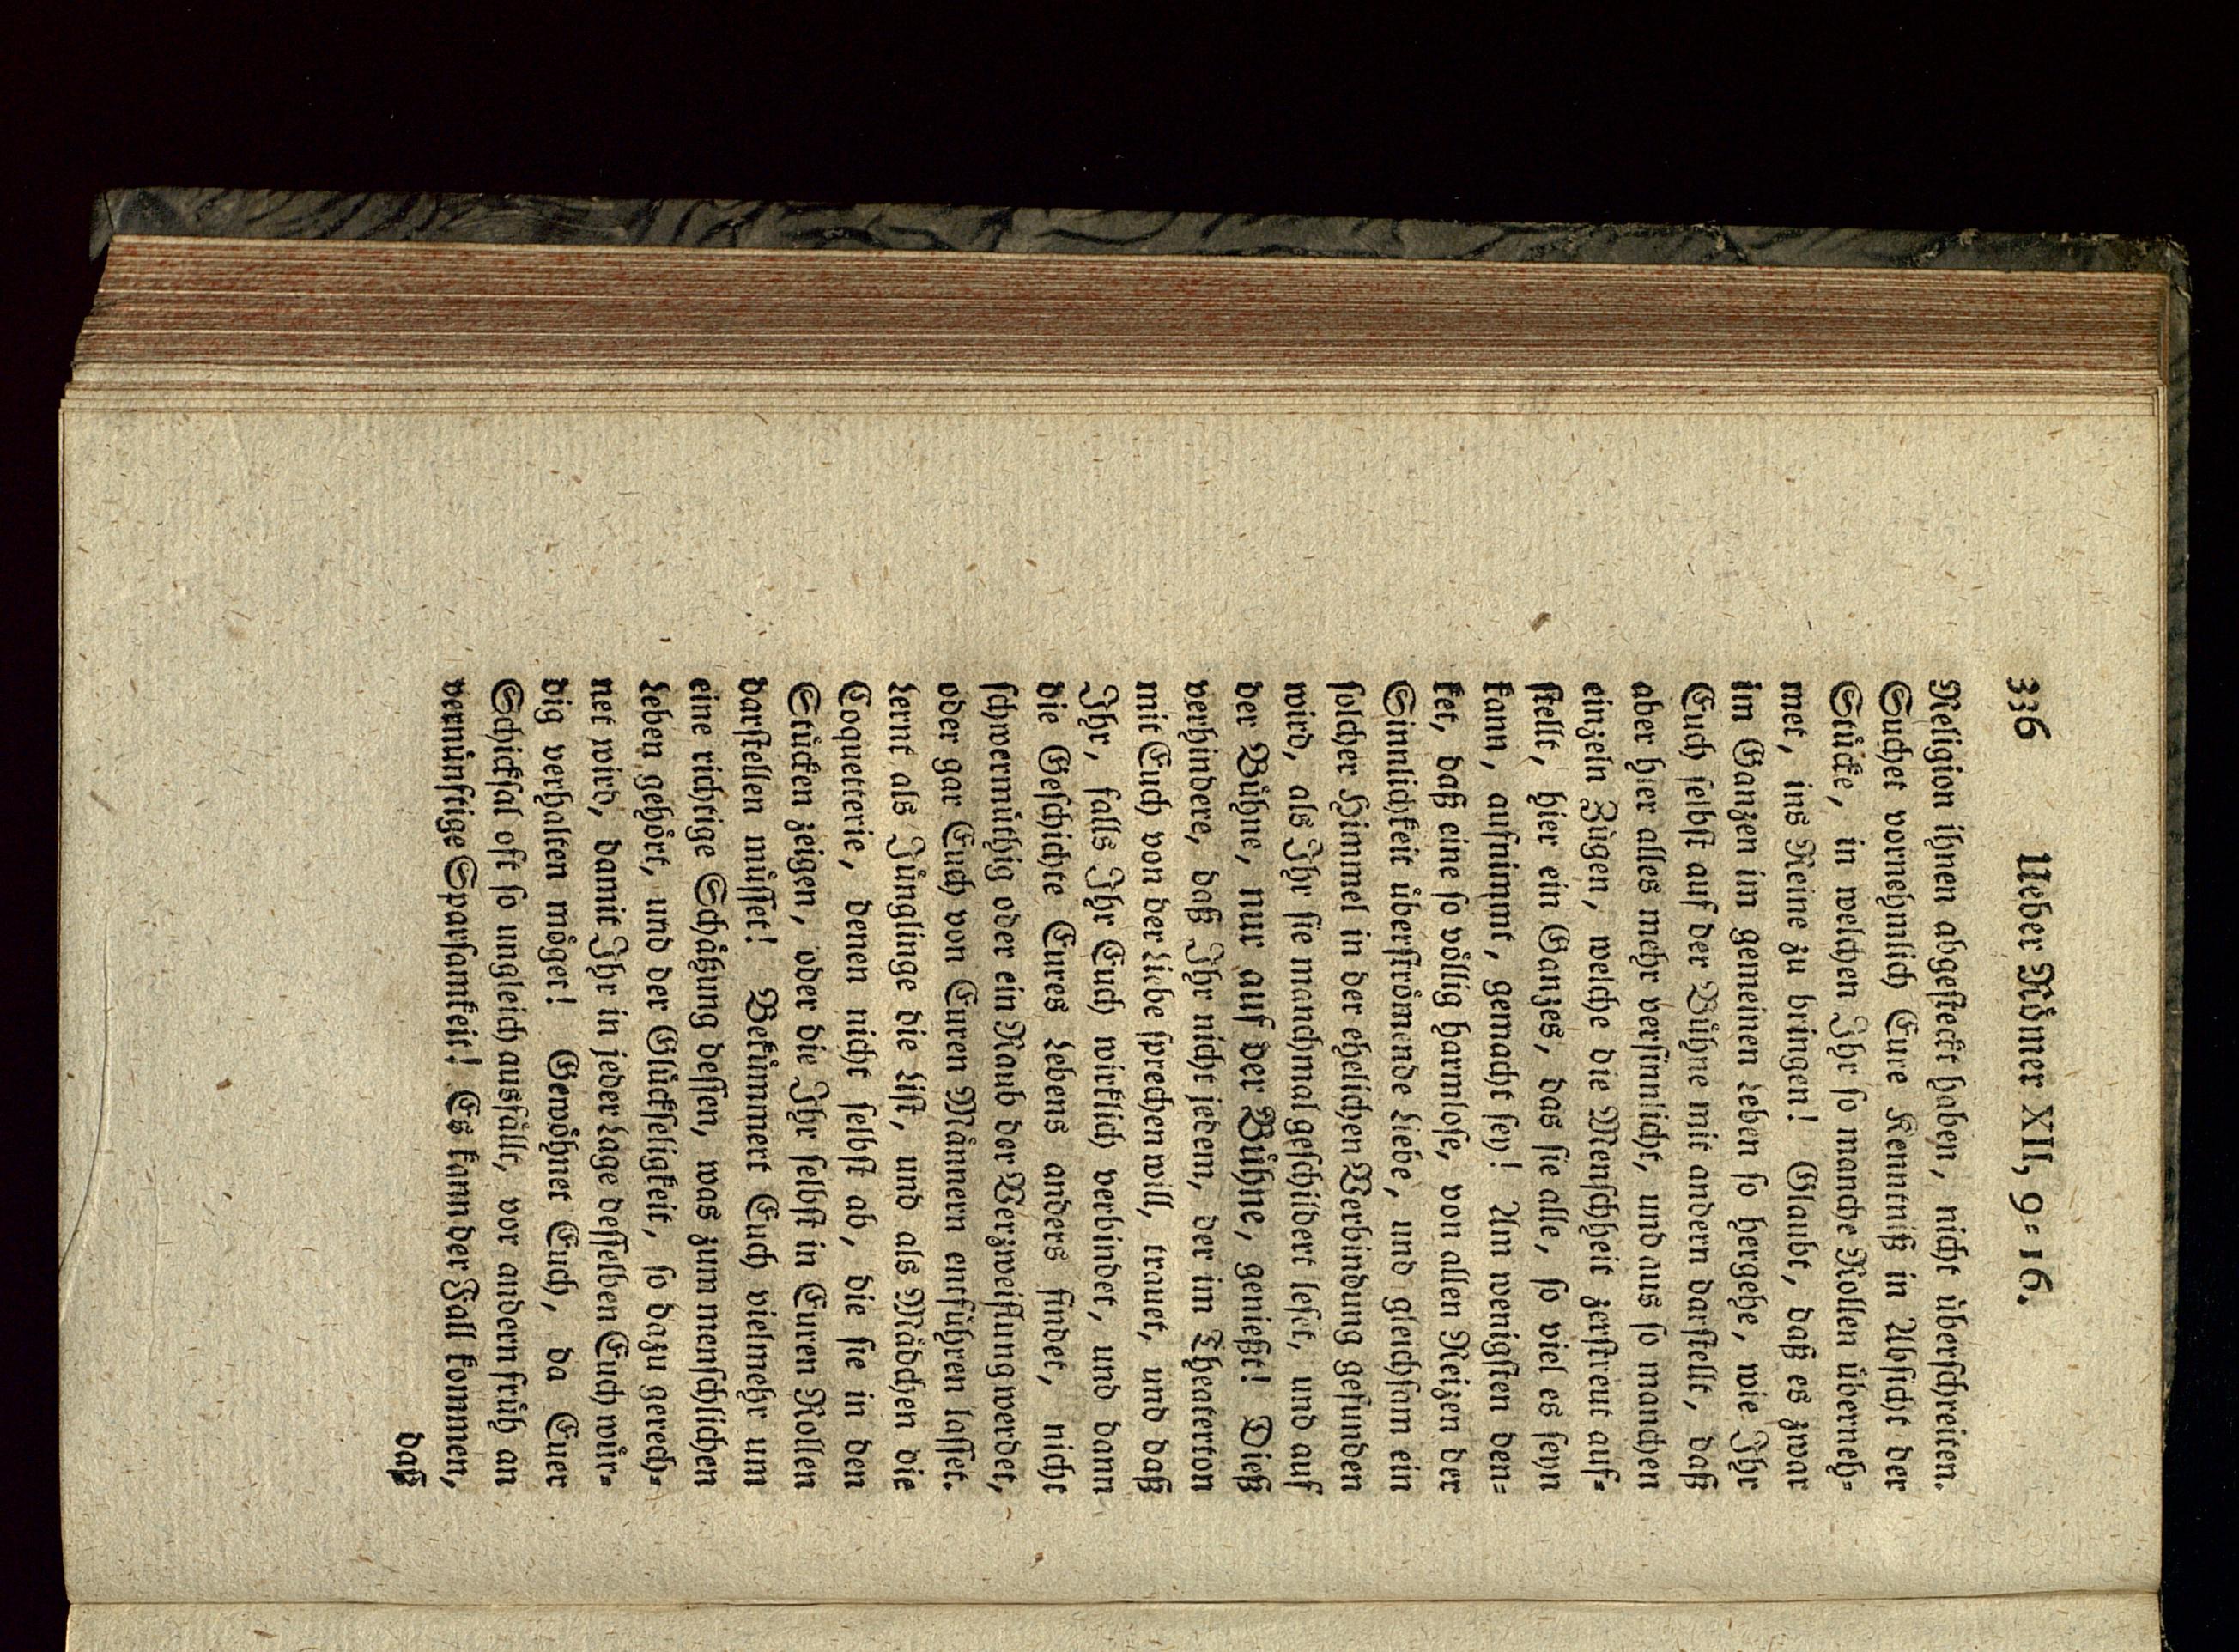 336 Ueber Römer XII, 9=16.
Religion ihnen abgesteckt haben, nicht überschreiten.
Suchet vornehmlich Eure Kenntniß in Absicht der
Stücke, in welchen Ihr so manche Rollen überneh=
met, ins Reine zu bringen! Glaubt, daß es zwar
im Ganzen im gemeinen Leben so hergehe, wie Ihr
Euch selbst auf der Bühne mit andern darstellt, daß
aber hier alles mehr versinnlicht, und aus so manchen
einzeln Zügen, welche die Menschheit zerstreut auf=
stellt, hier ein Ganzes, das sie alle, so viel es seyn
kann, aufnimmt, gemacht sey! Am wenigsten den=
ket, daß eine so völlig harmlose, von allen Reizen der
Sinnlichkeit überströmende Liebe, und gleichsam ein
solcher Himmel in der ehelichen Verbindung gefunden
wird, als Ihr sie manchmal geschildert leset, und auf
der Bühne, nur auf der Bühne, genießt! Dieß
verhindere, daß Ihr nicht jedem, der im Theaterton
mit Euch von der Liebe sprechen will, trauet, und daß
Ihr, falls Ihr Euch wirklich verbindet, und dann
die Geschichte Eures Lebens anders findet, nicht
schwermüthig oder ein Raub der Verzweiflung werdet,
oder gar Euch von Euren Männern entführen lasset.
Lernt als Jünglinge die List, und als Mädchen die
Coquetterie, denen nicht selbst ab, die sie in den
Stücken zeigen, oder die Ihr selbst in Euren Rollen
darstellen müsset! Bekümmert Euch vielmehr um
eine richtige Schätzung dessen, was zum menschlichen
Leben gehört, und der Glückseligkeit, so dazu gerech=
net wird, damit Ihr in jeder Lage desselben Euch wür=
dig verhalten möget! Gewöhnet Euch, da Euer
Schicksal oft so ungleich ausfällt, vor andern früh an
vernünftige Sparsamkeit! Es kann der Fall kommen,
daß